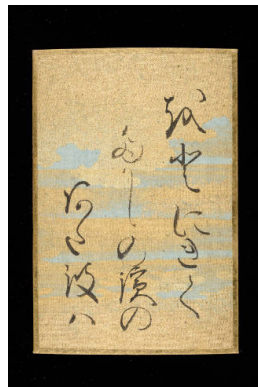 をとにきく
たかしの濱の
あた波ハ